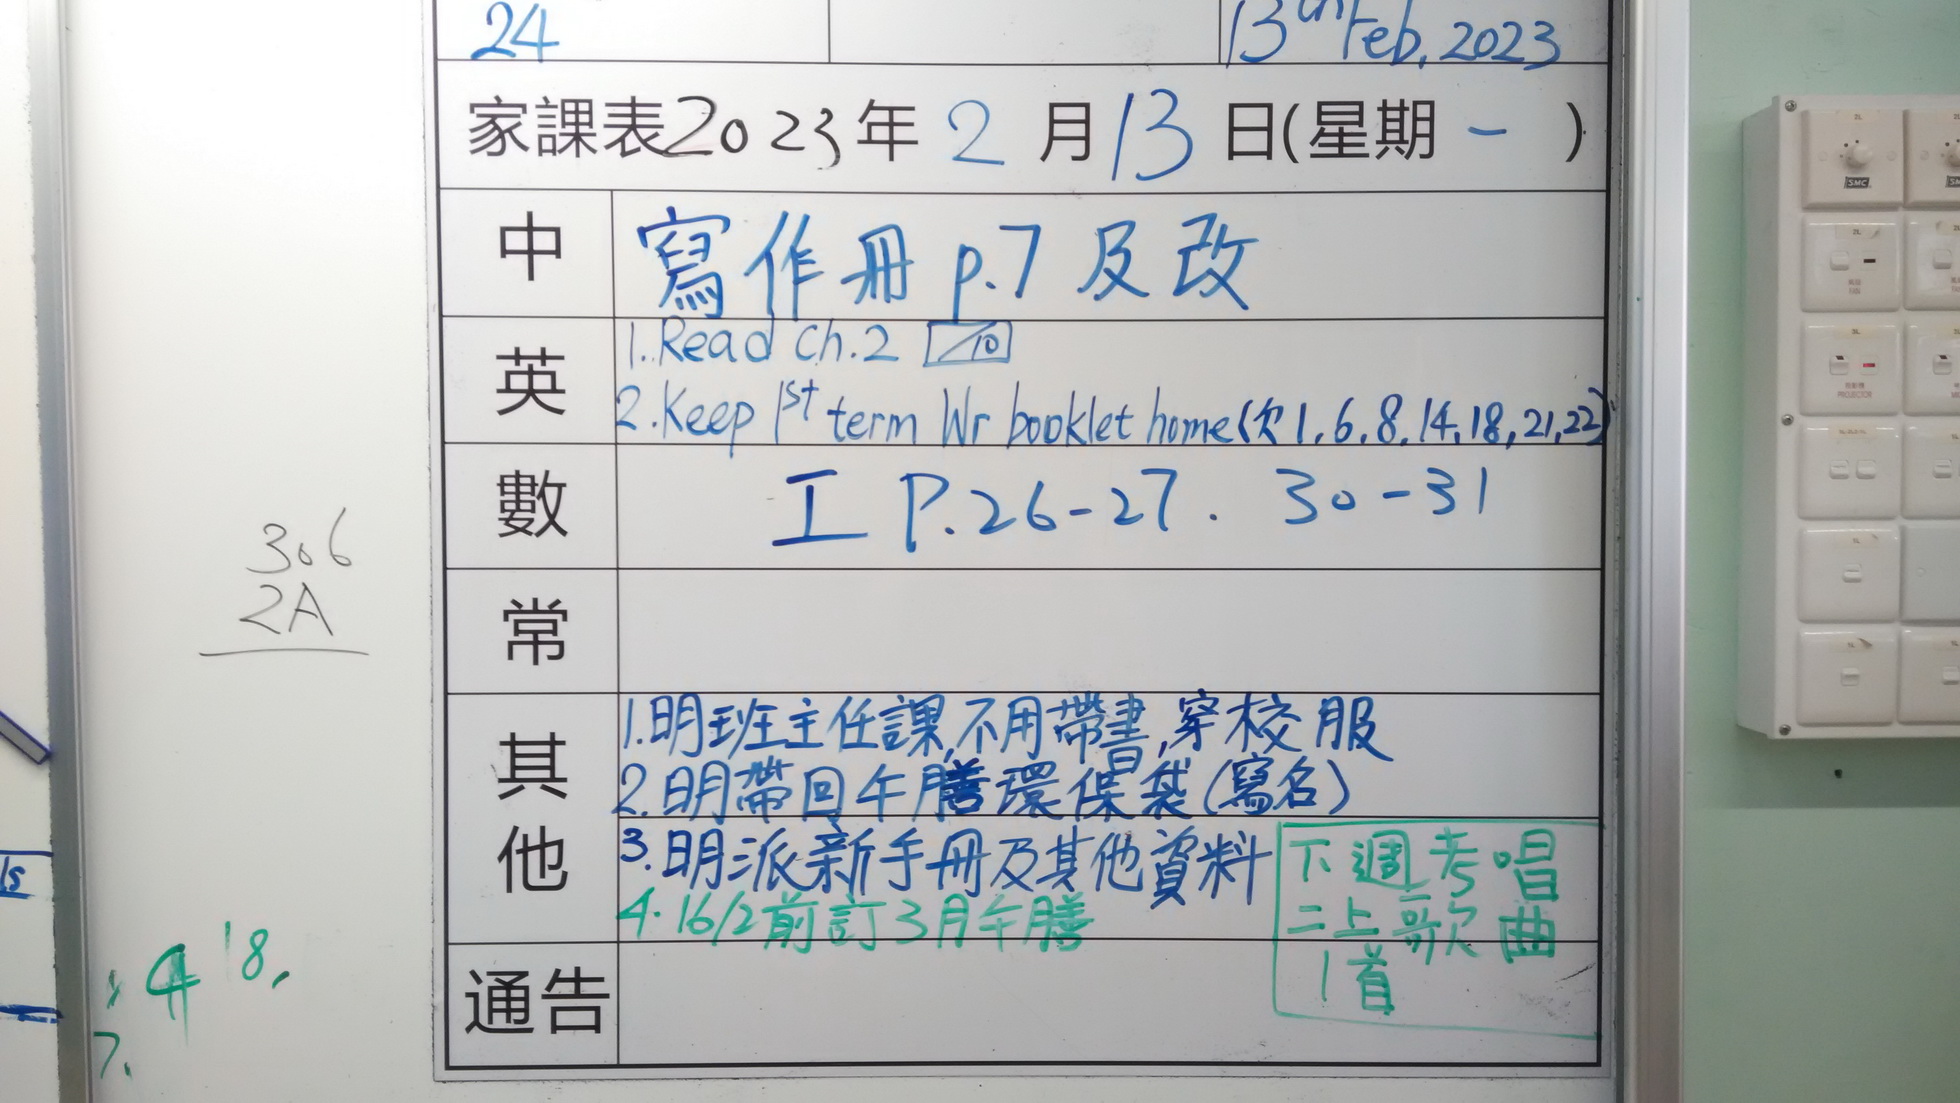 24
13th Feb, 2023
家課表2023年 2 月 13 日(星期 一 )
中
寫作冊 p.7 及改
英
1. Read Ch.2 /10
2. Keep 1st term Wr booklet home (欠 1, 6, 8, 14, 18, 21, 22)
數
工 P.26-27. 30-31
常
其他
1. 明班主任課,不用帶書,穿校服
2. 明帶回午膳環保袋(寫名)
3. 明派新手冊及其他資料
4. 16/2前訂3月午膳
下週考唱
二上歌曲
1首
通告
306
2A
18,
7.
ls
SMC
PROJECTOR